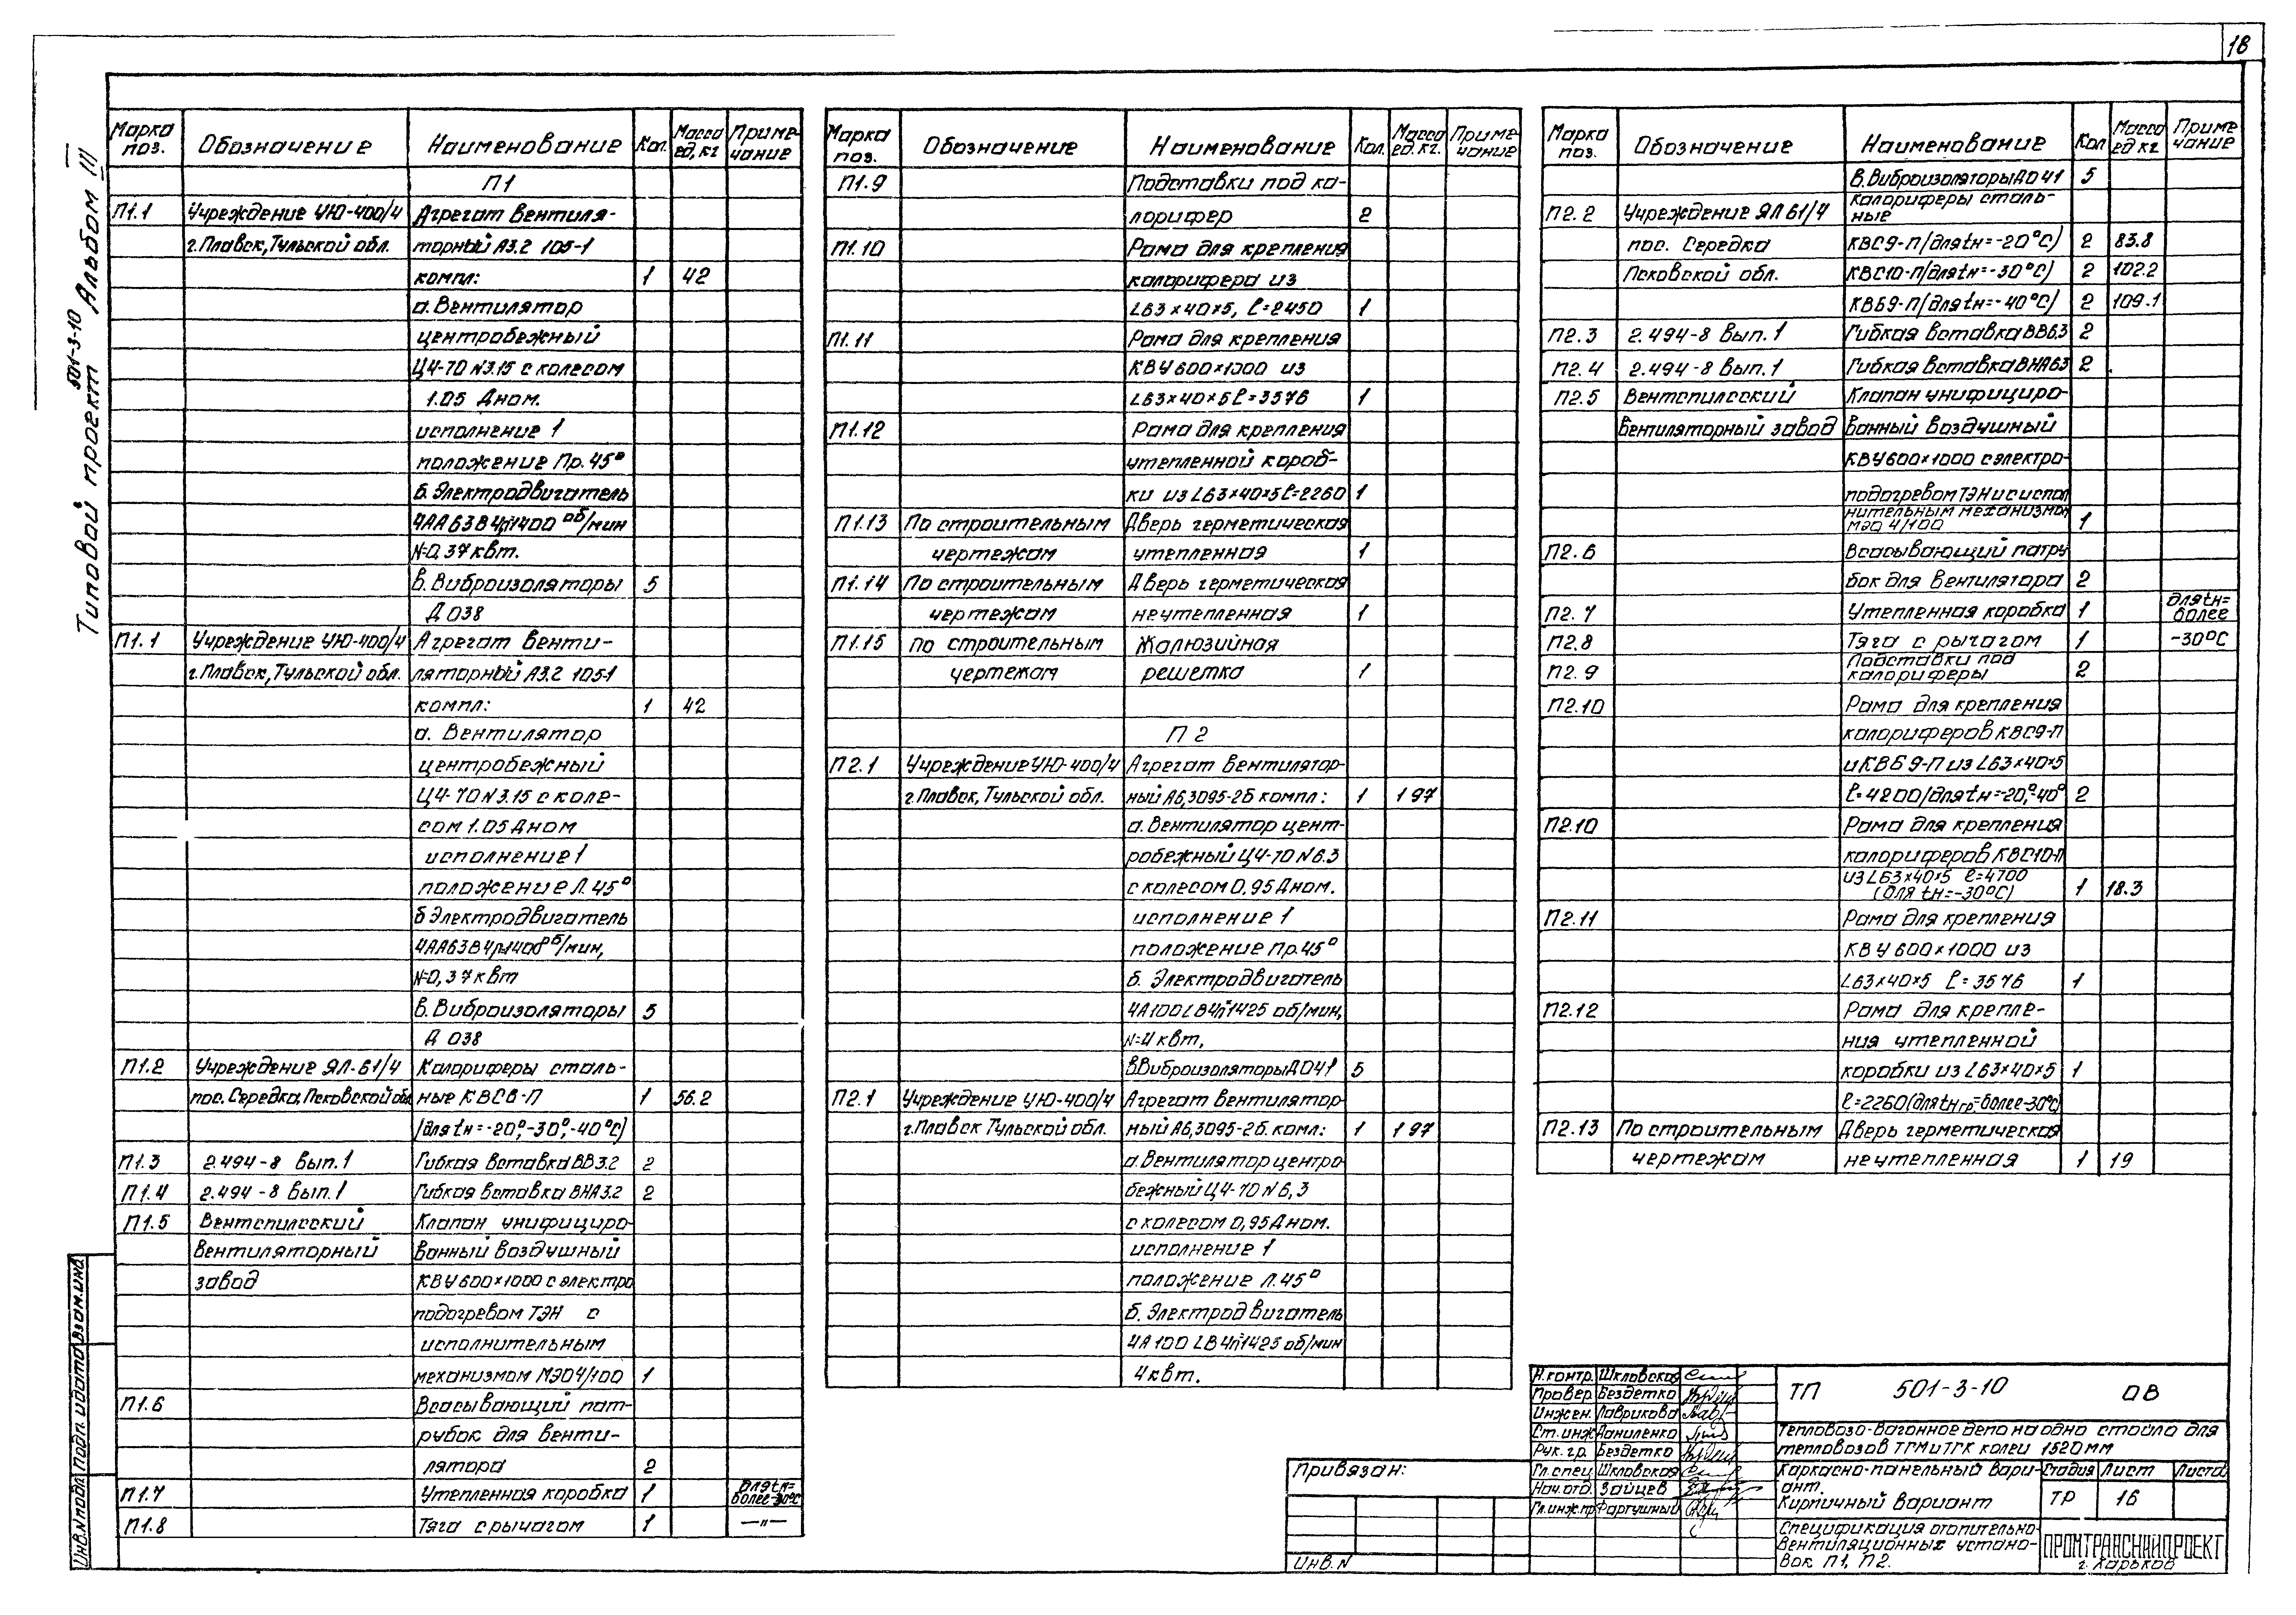 18
Типовой проект 501-3-10 Альбом III
Марка поз. Обозначение Наименование Кол. Масса ед, кг Примечание
П1
П1.1 Учреждение УЮ-400/4 Агрегат вентиля-
г. Плавск, Тульской обл. торный А3.2 105-1
компл: 1 42
а. Вентилятор
центробежный
Ц4-70 N3.15 с колесом
1.05 Дном.
исполнение 1
положение Пр. 45°
б. Электродвигатель
4АА63В4 n=1400 об/мин
N=0,37 квт.
в. Виброизоляторы 5
Д 038
П1.1 Учреждение УЮ-400/4 Агрегат венти-
г. Плавск, Тульской обл. ляторный А3.2 105-1
компл: 1 42
а. Вентилятор
центробежный
Ц4-70 N3.15 с коле-
сом 1.05 Дном
исполнение 1
положение Л. 45°
б Электродвигатель
4АА63В4 об/мин,
N=0,37 квт
в. Виброизоляторы 5
Д 038
П1.2 Учреждение ЯЛ-61/4 Калориферы сталь-
пос. Середка, Псковской обл. ные КВС6-П 1 56.2
(для tн=-20°,-30°,-40°С)
П1.3 2.494-8 вып. 1 Гибкая вставка ВВ3.2 2
П1.4 2.494-8 вып. 1 Гибкая вставка ВНА3.2 2
П1.5 Вентспилсский Клапан унифициро-
вентиляторный ванный воздушный
завод КВУ600×1000 с электро
подогревом ТЭН с
исполнительным
механизмом МЭО4/100 1
П1.6 Всасывающий пат-
рубок для венти-
лятора 2
П1.7 Утепленная коробка 1 для tн= более-30°С
П1.8 Тяга с рычагом 1 —"—
Марка поз. Обозначение Наименование Кол. Масса ед. кг. Примечание
П1.9 Подставки под ка-
лорифер 2
П1.10 Рама для крепления
калорифера из
L63×40×5, ℓ=2450 1
П1.11 Рама для крепления
КВУ600×1000 из
L63×40×5 ℓ=3576 1
П1.12 Рама для крепления
утепленной короб-
ки из L63×40×5 ℓ=2260 1
П1.13 По строительным Дверь герметическая
чертежам утепленная 1
П1.14 По строительным Дверь герметическая
чертежам неутепленная 1
П1.15 По строительным Жалюзийная
чертежам решетка 1
П 2
П2.1 Учреждение УЮ-400/4 Агрегат вентилятор-
г. Плавск, Тульской обл. ный А6,3095-2б компл: 1 197
а. Вентилятор цент-
робежный Ц4-70 N6.3
с колесом 0,95 Дном.
исполнение 1
положение Пр. 45°
б. Электродвигатель
4А100LВ4 n=1425 об/мин,
N=4 квт,
в. Виброизоляторы Д041 5
П2.1 Учреждение УЮ-400/4 Агрегат вентилятор
г. Плавск Тульской обл. ный А6,3095-2б. комл: 1 197
а. Вентилятор центро
бежный Ц4-70 N6,3
с колесом 0,95 Дном.
исполнение 1
положение Л. 45°
б. Электродвигатель
4А 100 LВ 4 n=1425 об/мин
4 квт.
Марка поз. Обозначение Наименование Кол Масса ед кг Примечание
в. Виброизоляторы Д041 5
П2.2 Учреждение ЯЛ 61/4 Калориферы сталь-
ные
пос. Середка КВС9-П/для tн=-20°С) 2 83.8
Псковской обл. КВС10-П/для tн=-30°С) 2 102.2
КВБ9-П/для tн=-40°С) 2 109.1
П2.3 2.494-8 вып. 1 Гибкая вставка ВВ6.3 2
П2.4 2.494-8 вып. 1 Гибкая вставка ВНА63 2
П2.5 Вентспилсский Клапан унифициро-
вентиляторный завод ванный воздушный
КВУ600×1000 с электро-
подогревом ТЭН и с испол
нительным механизмом
МЭО 4/100 1
П2.6 Всасывающий патру
бок для вентилятора 2
П2.7 Утепленная коробка 1 для tн= более
П2.8 Тяга с рычагом 1 -30°С
П2.9 Подставки под
калориферы 2
П2.10 Рама для крепления
калориферов КВС9-П
и КВБ9-П из L63×40×5
ℓ=4200/для tн=-20°,-40° 2
П2.10 Рама для крепления
калориферов КВС10-П
из L63×40×5 ℓ=4700
(для tн=-30°С) 1 18.3
П2.11 Рама для крепления
КВУ600×1000 из
L63×40×5 ℓ=3576 1
П2.12 Рама для крепле-
ния утепленной
коробки из L63×40×5 1
ℓ=2260(для tнгр=более-30°С)
П2.13 По строительным Дверь герметическая
чертежам неутепленная 1 19
Инв. N подл. Подп. и дата Взам. инв.
Привязан:
Инв. N
Н. контр. Шкловская
Провер. Бездетко
Инжен. Лаврикова
Ст. инж Даниленко
Рук. гр. Бездетко
Гл. спец Шкловская
Нач. отд. Зайцев
Гл. инж. пр Фартушный
ТП 501-3-10 ОВ
Тепловозо-вагонное депо на одно стойло для
тепловозов ТГМ и ТГК колеи 1520мм
Каркасно-панельный вари-
ант.
Кирпичный вариант
Стадия Лист Листов
ТР 16
Спецификация отопительно-
вентиляционных устано-
вок П1, П2.
ПРОМТРАНСНИИПРОЕКТ
г. Харьков